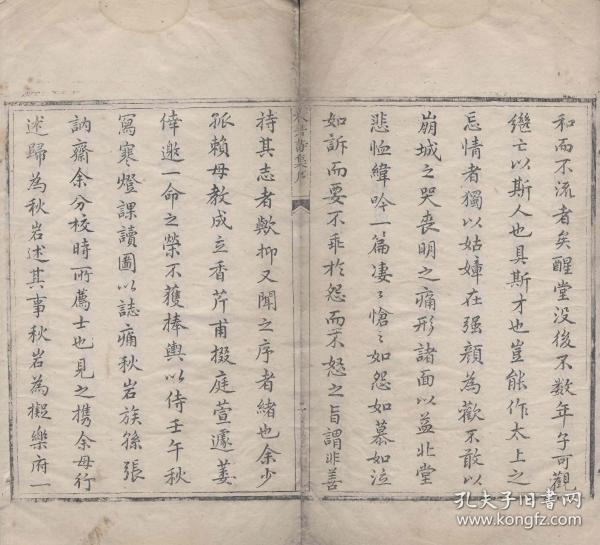 和而不流者矣醒堂没後不数年子可觀
繼亡以斯人也具斯才也豈能作太上之
忘情者獨以姑嫜在强顔為歡不敢以
崩城之哭喪明之痛形諸面以益北堂
悲恤緯吟一篇凄〻愴〻如怨如慕如泣
如訴而要不乖於怨而不怒之旨謂非善
集序
持其志者歟抑又聞之序者緒也余少
孤賴母教成立香芹甫掇庭萱遽萎
倖邀一命之榮不獲捧輿以侍壬午秋
寫寒燈課讀圖以誌痛秋岩族孫張
訥齋余分校時所薦士也見之携余母行
述歸為秋岩述其事秋岩為擬樂府一
孔夫子旧書网
www.kongfz.com